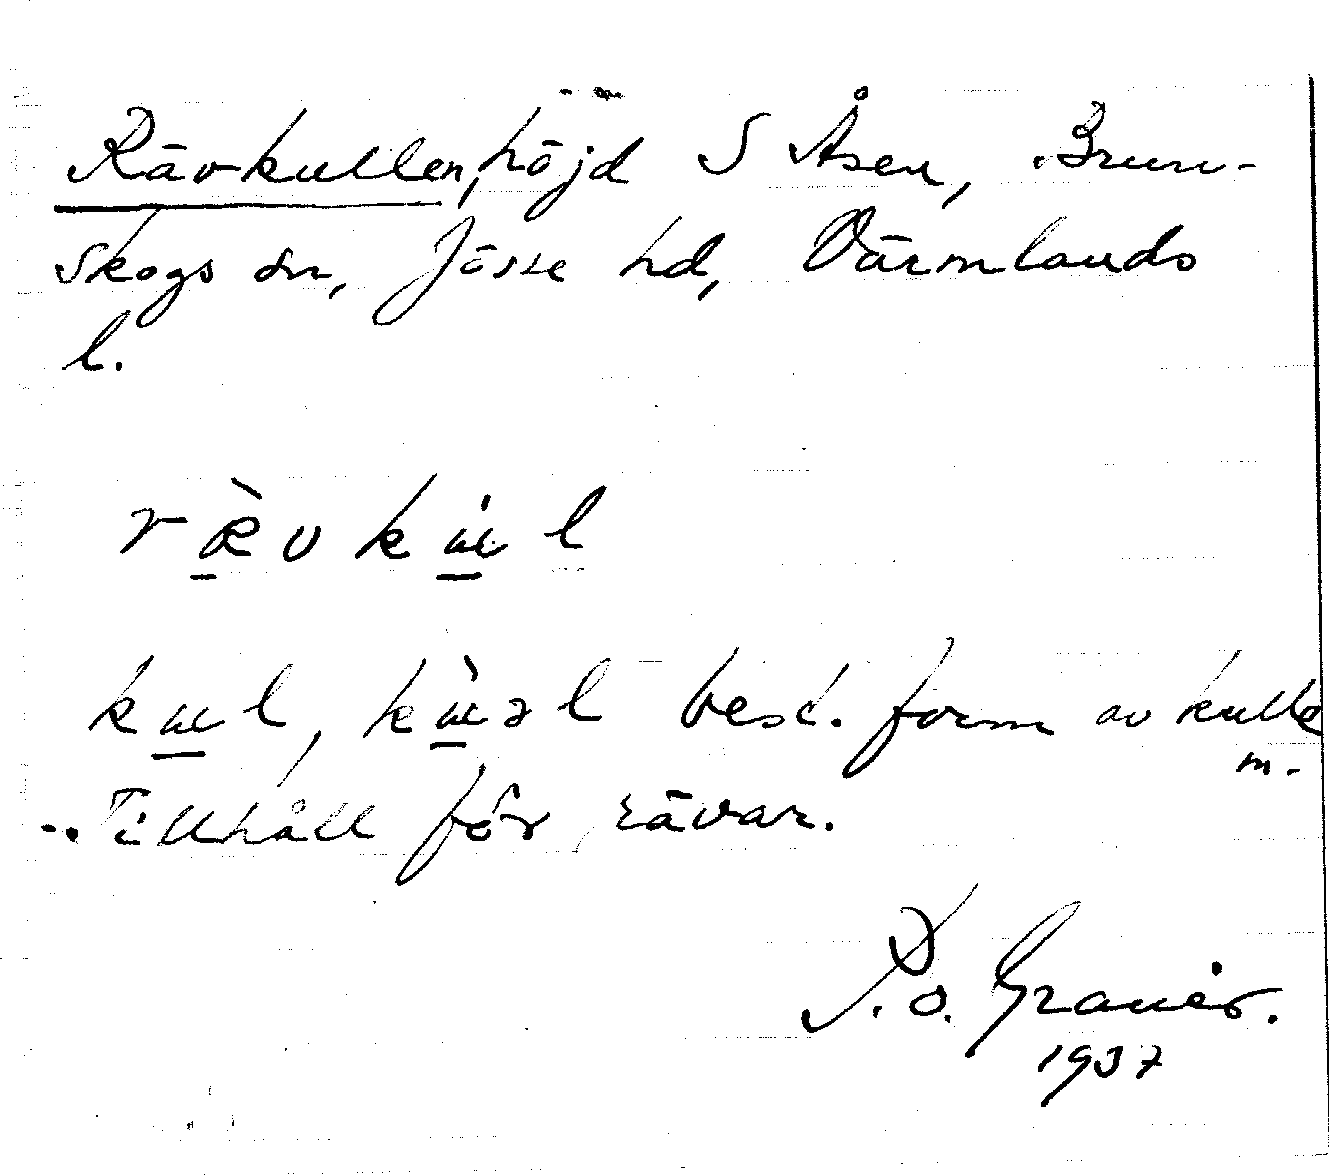 Rävkullen, höjd S Åsen, Brun-
skogs sn, Jösse hd, Värmlands
l.
best. form av kulle
m.
Tillhåll för rävar.
P. O. Granér.
1937